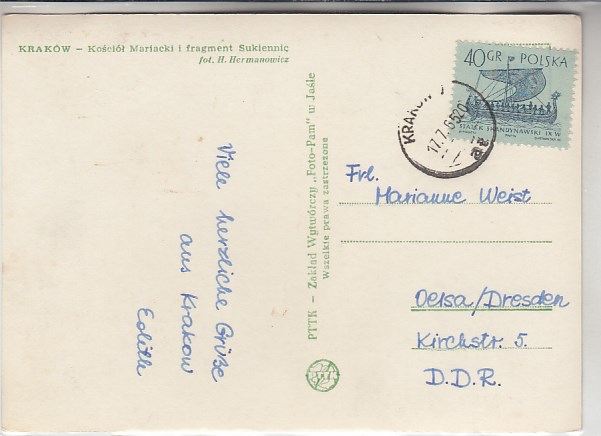 KRAKÓW – Kościół Mariacki i fragment Sukiennic
fot. H. Hermanowicz
40 GR POLSKA
STATEK SKANDYNAWSKI IX W.
KRAKÓW
17.7.65 20
Viele herzliche Grüße
aus Krakow
Edith
PTTK – Zakład Wytwórczy „Foto-Pam” w Jaśle
Wszelkie prawa zastrzeżone
Frl.
Marianne Weist
Oelsa/Dresden
Kirchstr. 5.
D.D.R.